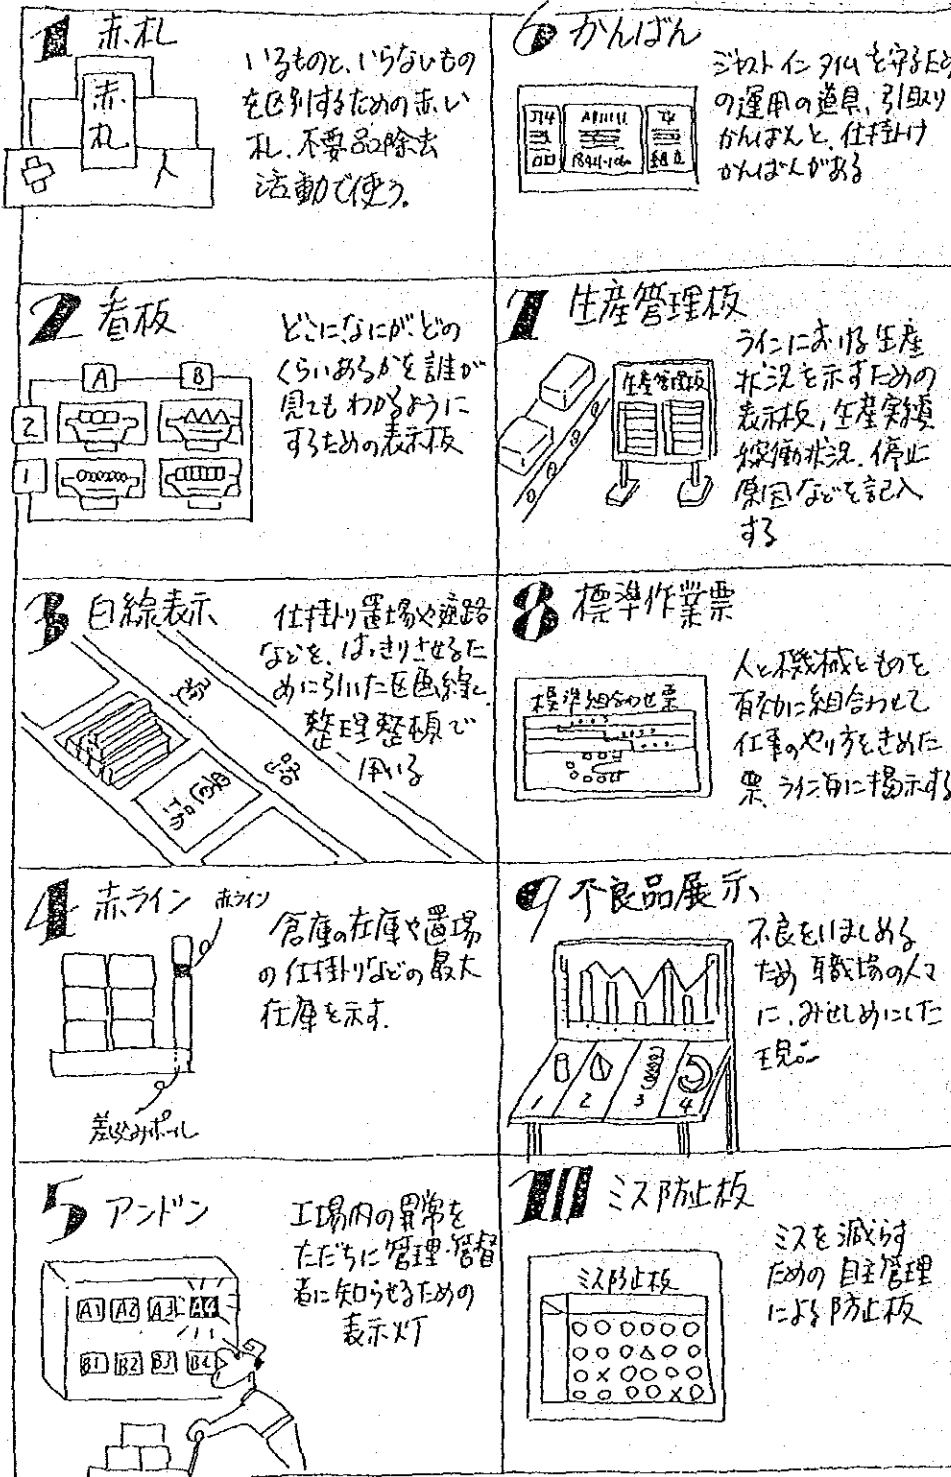 1 赤札
赤
札
いるものと、いらないもの
を区別するための赤い
札、不要品除去
活動で使う。
2 看板
A B
2
1
どこになにが、どの
くらいあるかを誰が
見てもわかるように
するための表示板
3 白線表示
仕掛り置場や通路
などを、はっきりさせるた
めに引いた区画線、
整理整頓で
用いる
通
路
4 赤ライン
赤ライン
倉庫の在庫や置場
の仕掛りなどの最大
在庫を示す.
差込みポール
5 アンドン
工場内の異常を
ただちに管理・監督
者に知らせるための
表示灯
A1 A2 A3 A4
B1 B2 B3 B4
6 かんばん
ジャストインタイムを守るため
の運用の道具、引取り
かんばんと、仕掛け
かんばんがある
組立
7 生産管理板
生産管理板
ラインにおける生産
状況を示すための
表示板,生産実績
稼働状況、停止
原因などを記入
する
8 標準作業票
標準組合わせ票
人と機械とものを
有効に組合わせて
仕事のやり方をきめた
票、ライン毎に掲示する
9 不良品展示
不良をいましめる
ため 職場の人々
に、みせしめにした
現品
1 2 3 4
10 ミス防止板
ミス防止板
ミスを減らす
ための 自主管理
による防止板